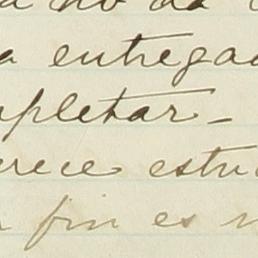 a no da
a entregad
mpletar-
rece estu
fin es